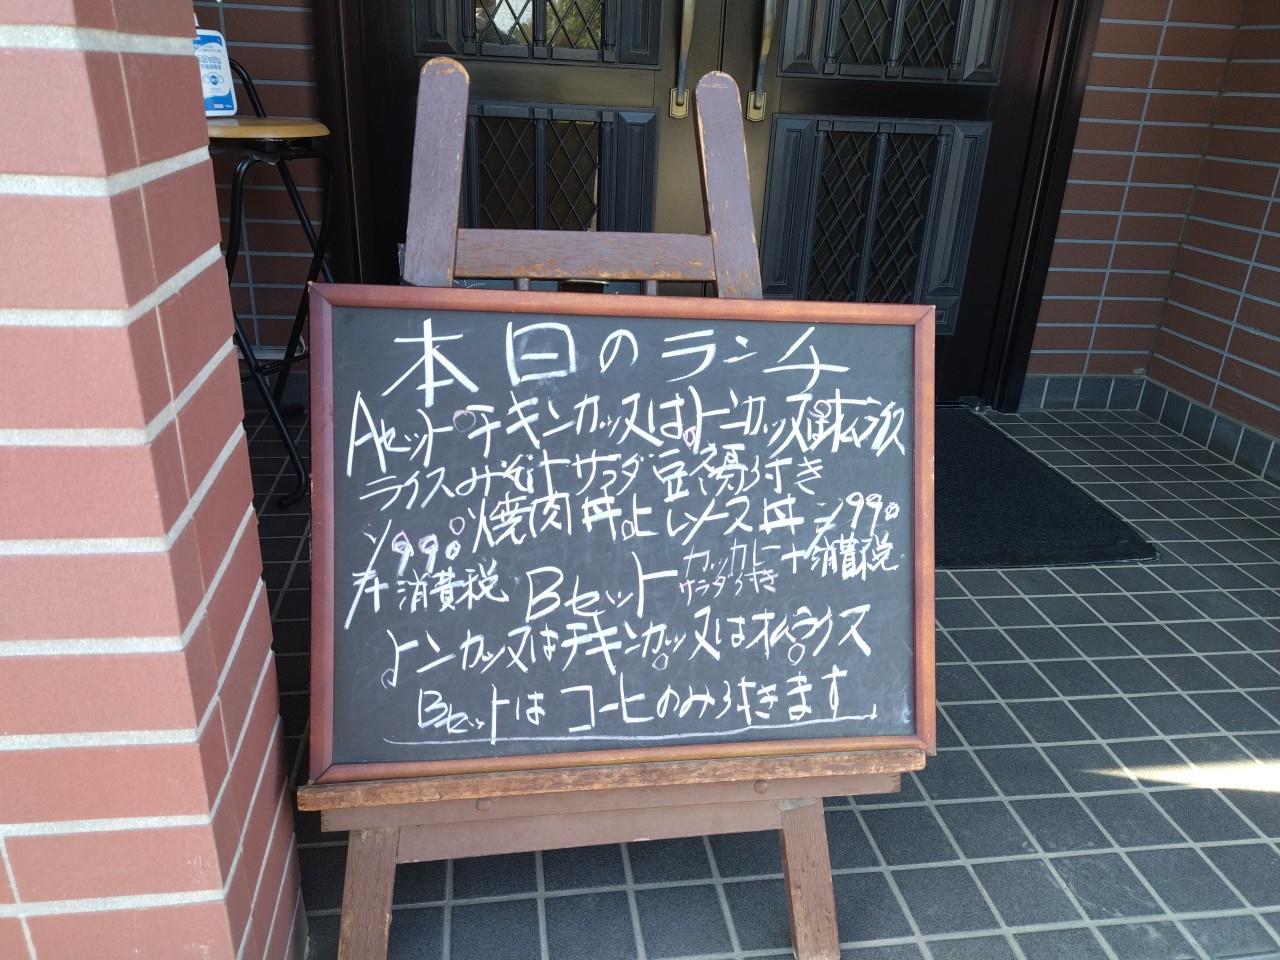 本日のランチ
Aセット チキンカツ又はトンカツ又は オムライス
ライスみそ汁サラダ豆腐付き
焼肉丼 ヒレソース丼 990
990
+消費税 Bセット カツカレー +消費税
サラダ付き
トンカツ又はチキンカツ又はオムライス
Bセットはコーヒのみ付きます